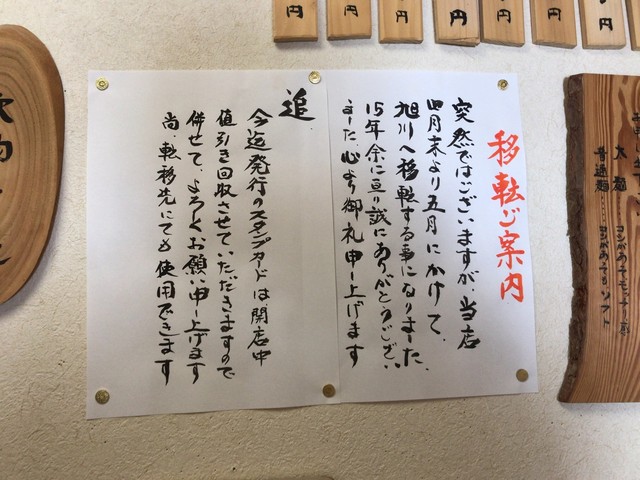 円
円
円
円
円
円
円
円
移転ご案内
突然ではございますが、当店
四月末より五月にかけて、
旭川へ移転する事になりました、
15年余に亘り誠にありがとうござい
ました、心より御礼申し上げます
追
今迄発行のスタンプカードは開店中
値引き回収させていただきますので
併せて、よろしくお願い申し上げます
尚、転移先にても使用できます
太麺
普通麺……コシがあってもソフト